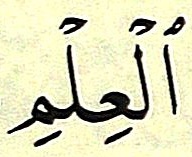 ٱلْعِلْمِ